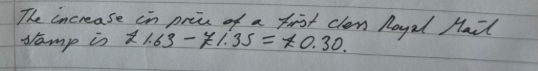 The increase in price of a first class Royal Mail
stamp is £1.63 - £1.35 = £0.30.